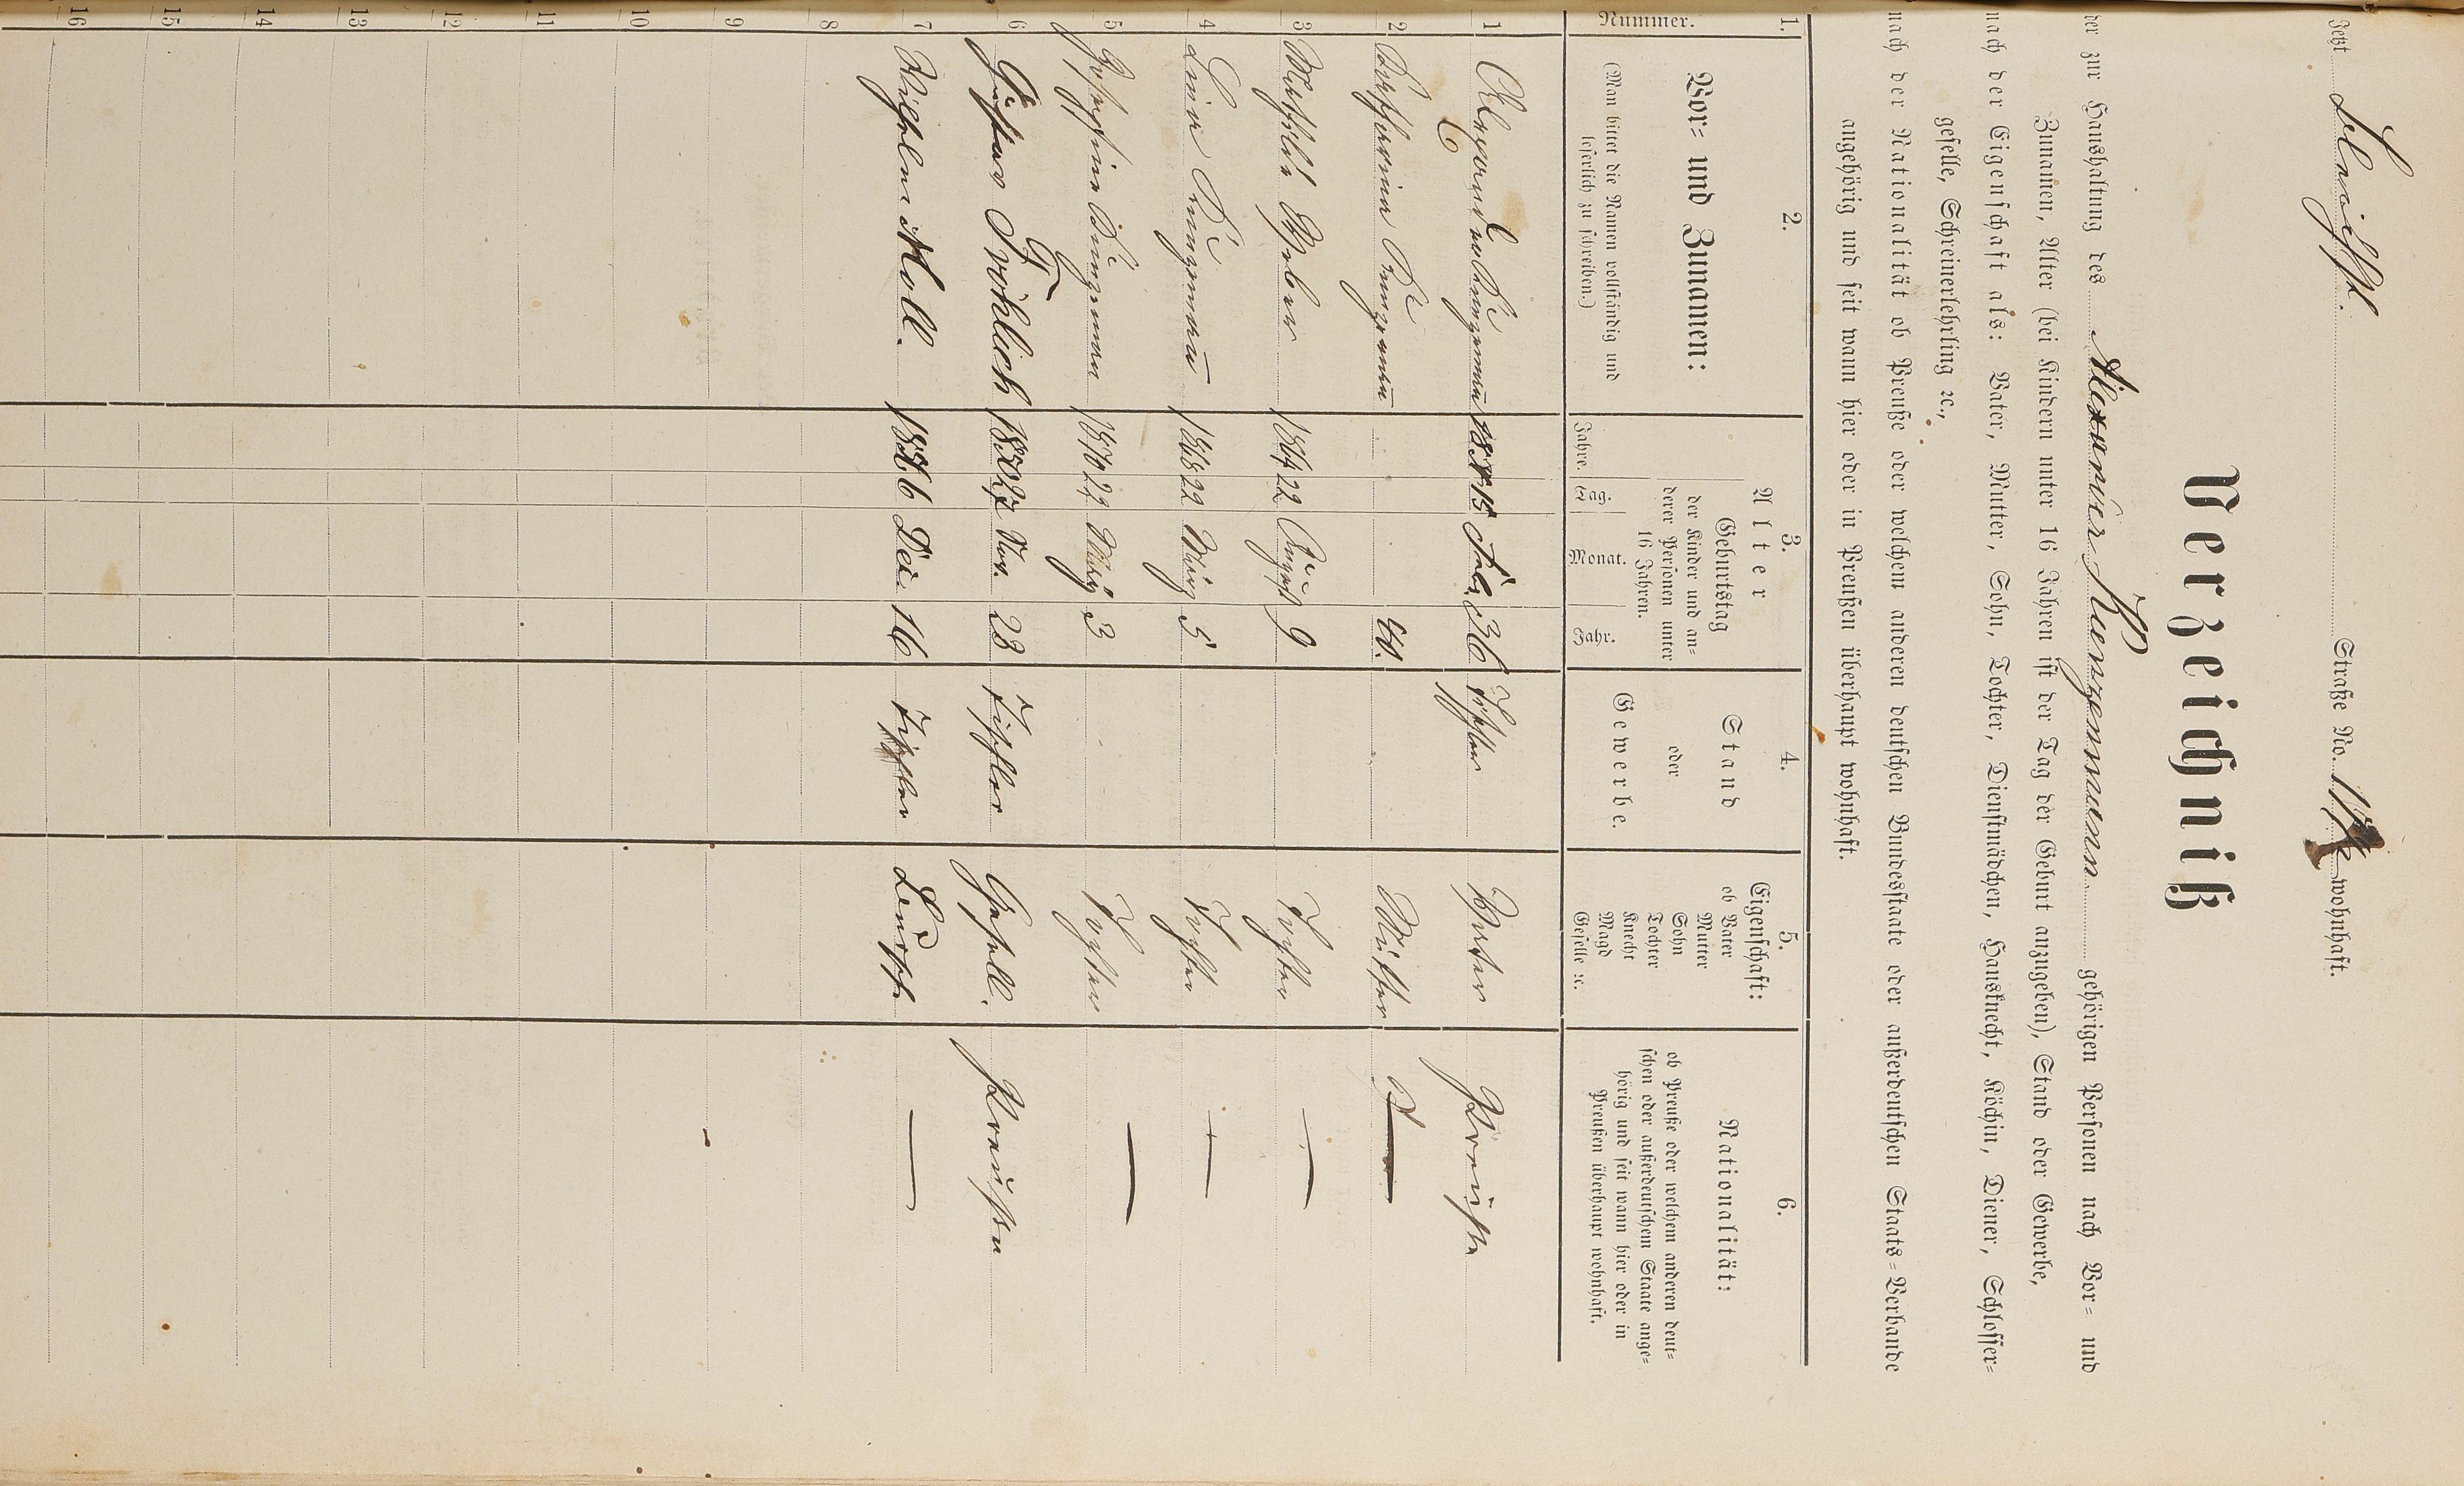 Jetzt Straße No. wohnhaft.
Verzeichniß
der zur Haushaltung des Alexander Kunzemann gehörigen Personen nach Vor- und
Zunamen, Alter (bei Kindern unter 16 Jahren ist der Tag der Geburt anzugeben), Stand oder Gewerbe,
nach der Eigenschaft als: Vater, Mutter, Sohn, Tochter, Dienstmädchen, Hausknecht, Köchin, Diener, Schlosser-
geselle, Schreinerlehrling ꝛc.,
nach der Nationalität ob Preuße oder welchem anderen deutschen Bundesstaate oder außerdeutschen Staats-Verbande
angehörig und seit wann hier oder in Preußen überhaupt wohnhaft.
1. 2. 3. 4. 5. 6.
Nummer.
Vor- und Zunamen:
(Man bittet die Namen vollständig und
leserlich zu schreiben.)
Alter
Geburtstag
der Kinder und an-
derer Personen unter
16 Jahren.
Jahre. Tag. Monat. Jahr.
Stand
oder
Gewerbe.
Eigenschaft:
ob Vater
Mutter
Sohn
Tochter
Knecht
Magd
Geselle ꝛc.
Nationalität:
ob Preuße oder welchem anderen deut-
schen oder außerdeutschem Staate ange-
hörig und seit wann hier oder in
Preußen überhaupt wohnhaft.
1 Alexander Kunzemann 15 36 Tischler Vater Preuße
2 Kunzemann 41. Mutter
3 Mathilde Weber 1864 22 August 9 Tochter —
4 Lina Kunzemann 1868 22 März 5 Tochter —
5 Josephine Kunzeman 1870 22 März 3 Tochter —
6 Gustav Fröhlich 27 Nov. 23 Tischler Gesell. Preußen
7 Wilhelm Moll. 6 Dec. 16 Tischler —
8
9
10
11
12
13
14
15
16